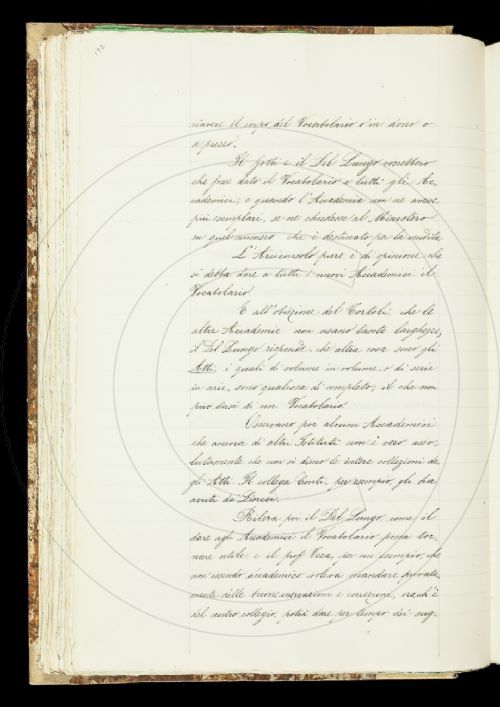 192
riavere il corpo del Vocabolario o in dono o
a prezzo.
Il Gotti e il Del Lungo vorrebbero
che fosse dato il Vocabolario a tutti gli Ac-
cademici; e quando l'Accademia non ne avesse
più esemplari, se ne chiedesse al Ministero
su quel numero che è destinato per la vendita
L'Arciconsolo pure è di opinione che
si debba dare a tutti i nuovi Accademici il
Vocabolario.
E all'obiezione del Tortoli, che le
altre Accademie non usano tante larghezze,
il Del Lungo risponde, che altra cosa sono gli
Atti, i quali di volume in volume, o di serie
in serie, sono qualcosa di completo; il che non
può dirsi di un Vocabolario.
Osservano poi alcuni Accademici
che ancora di altri Istituti non è vero asso-
lutamente che non si dieno le intere collezioni de-
gli Atti. Il collega Conti, per esempio, gli ha
avuti da' Lincei.
Rileva poi il Del Lungo come il
dare agli Accademici il Vocabolario possa tor-
nare utile; e il prof. per un esempio, che
non essendo accademico soleva mandare privata-
mente delle buone osservazioni e correzioni, ora ch'è
del nostro collegio, potrà dare per tempo dei sug-